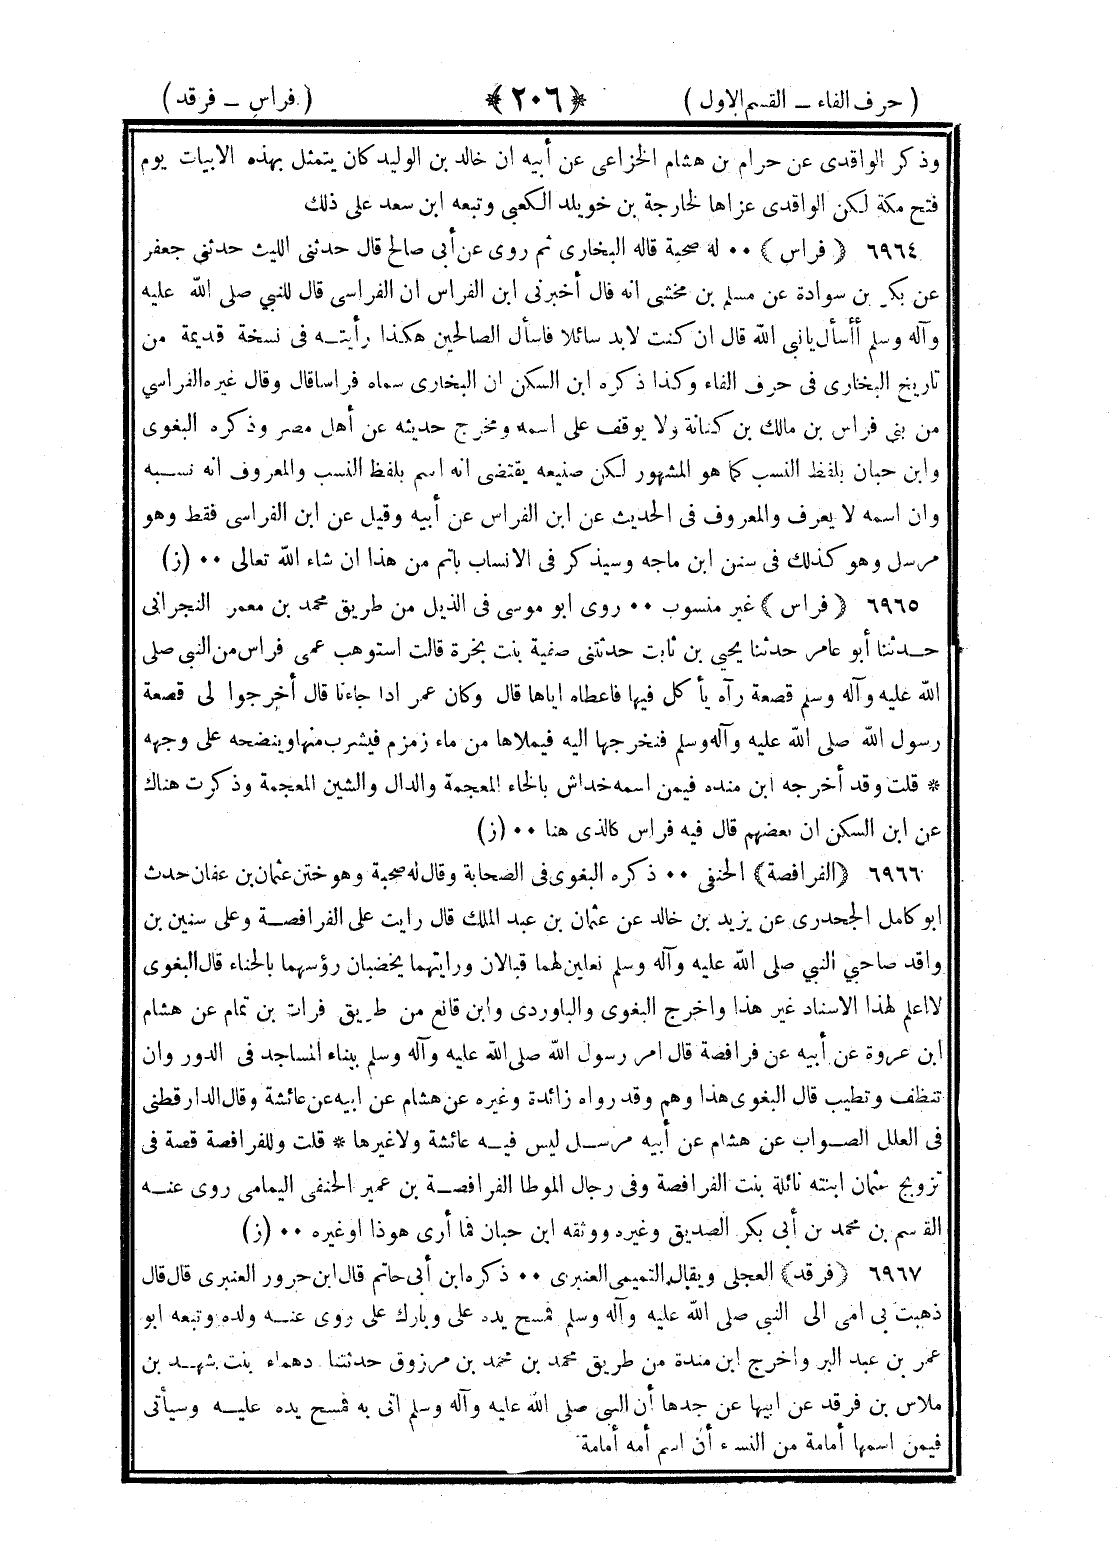 ( حرف الفاء – القسم الاول ) ﴿ ٢٠٦ ﴾ ( فراس – فرقد )
وذكر الواقدى عن حرام بن هشام الخزاعى عن أبيه ان خالد بن الوليد كان يتمثل بهذه الابيات يوم
فتح مكة لكن الواقدى عزاها لخارجة بن خويلد الكعبي وتبعه ابن سعد على ذلك
٦٩٦٤ ﴿ فراس ﴾ ٠٠ له صحبة قاله البخارى ثم روى عن أبى صالح قال حدثنى الليث حدثني جعفر
عن بكر بن سوادة عن مسلم بن مخشى انه قال أخبرنى ابن الفراس ان الفراسى قال للنبي صلى الله عليه
وآله وسلم أأسأل يانبى الله قال ان كنت لابد سائلا فاسأل الصالحين هكذا رأيتــه فى نسخة قديمة من
تاريخ البخارى فى حرف الفاء وكذا ذكره ابن السكن ان البخارى سماه فراسا قال وقال غيره الفراسي
من بنى فراس بن مالك بن كنانة ولا يوقف على اسمه ومخرج حديثه عن أهل مصر وذكره البغوى
وابن حبان بلفظ النسب كما هو المشهور لكن صنيعه يقتضى انه اسم بلفظ النسب والمعروف انه نســبه
وان اسمه لا يعرف والمعروف فى الحديث عن ابن الفراس عن أبيه وقيل عن ابن الفراسى فقط وهو
مرسل وهو كذلك فى سنن ابن ماجه وسيذكر فى الانساب باتم من هذا ان شاء الله تعالى ٠٠ (ز)
٦٩٦٥ ﴿ فراس ﴾ غير منسوب ٠٠ روى ابو موسى فى الذيل من طريق محمد بن معمر النجرانى
حــدثنا أبو عامر حدثنا يحيى بن ثابت حدثتنى صفية بنت بخرة قالت استوهب عمى فراس من النبي صلى
الله عليه وآله وسلم قصعة رآه يأكل فيها فاعطاه اياها قال وكان عمر اذا جاءنا قال أخرجوا لى قصعة
رسول الله صلى الله عليه وآله وسلم فنخرجها اليه فيملاها من ماء زمزم فيشرب منها وينضحه على وجهه
* قلت وقد أخرجه ابن منده فيمن اسمه خداش بالخاء المعجمة والدال والشين المعجمة وذكرت هناك
عن ابن السكن ان بعضهم قال فيه فراس كالذى هنا ٠٠ (ز)
٦٩٦٦ ﴿الفرافصة﴾ الحنفى ٠٠ ذكره البغوى فى الصحابة وقال له صحبة وهو ختن عثمان بن عفان حدث
ابو كامل الجحدرى عن يزيد بن خالد عن عثمان بن عبد الملك قال رايت على الفرافصــة وعلى سنين بن
واقد صاحبي النبي صلى الله عليه وآله وسلم نعلين لهما قبالان ورايتهما يخضبان رؤسهما بالحناء قال البغوى
لااعلم لهذا الاسناد غير هذا واخرج البغوى والباوردى وابن قانع من طريق فرات بن تمام عن هشام
ابن عروة عن أبيه عن فرافصة قال امر رسول الله صلى الله عليه وآله وسلم ببناء المساجد فى الدور وان
تنظف وتطيب قال البغوى هذا وهم وقد رواه زائدة وغيره عن هشام عن ابيه عن عائشة وقال الدار قطنى
فى العلل الصــواب عن هشام عن أبيه مرســل ليس فيــه عائشة ولا غيرها * قلت وللفرافصة قصة فى
تزويج عثمان ابنته نائلة بنت الفرافصة وفى رجال الموطا الفرافصــة بن عمير الحنفى اليمامى روى عنــه
القسم بن محمد بن أبى بكر الصديق وغيره ووثقه ابن حبان فما أرى هو ذا اوغيره ٠٠ (ز)
٦٩٦٧ ﴿فرقد﴾ العجلى ويقال التميمى العنبرى ٠٠ ذكره ابن أبى حاتم قال ابن حرور العنبرى قال قال
ذهبت بى امى الى النبي صلى الله عليه وآله وسلم فمسح يده على وبارك على روى عنــه ولده وتبعه ابو
عمر بن عبد البر واخرج ابن مندة من طريق محمد بن محمد بن مرزوق حدثتنا دهماء بنت شهــد بن
ملاس بن فرقد عن ابيها عن جدها أن النبى صلى الله عليه وآله وسلم اتى به فمسح يده عليــه وسيأتى
فيمن اسمها أمامة من النسء أن اسم أمه أمامة